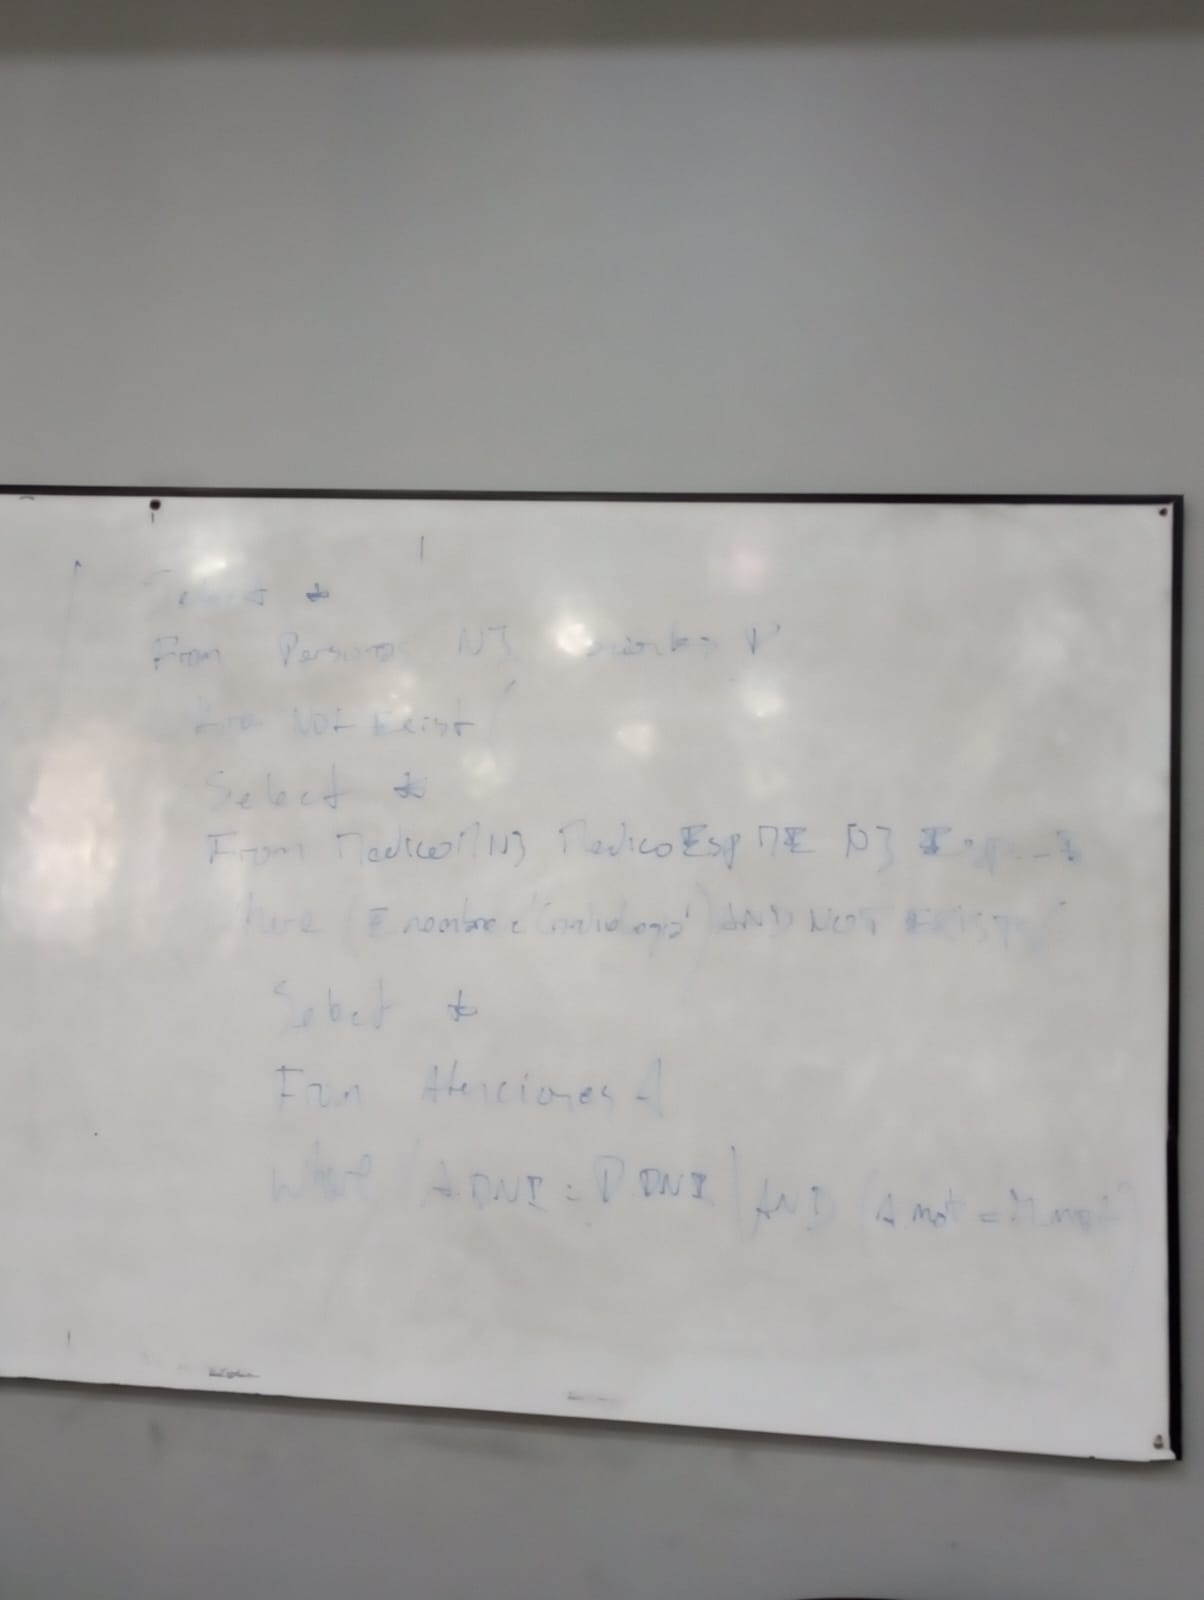 Select *
From Personas NJ Pacientes P
Where Not Exist (
Select *
From Medico M NJ MedicoEsp ME NJ
here (E nombre = 'Cardiologia') AND NOT EXISTS (
Select *
From Atenciones A
Where (A DNI = P DNI) AND (A mat = M mat)